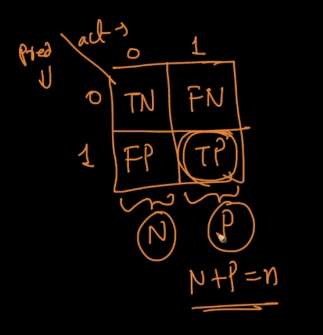 Pred ↓ act →
0 1
0 TN FN
1 FP TP
N P
N+P=n